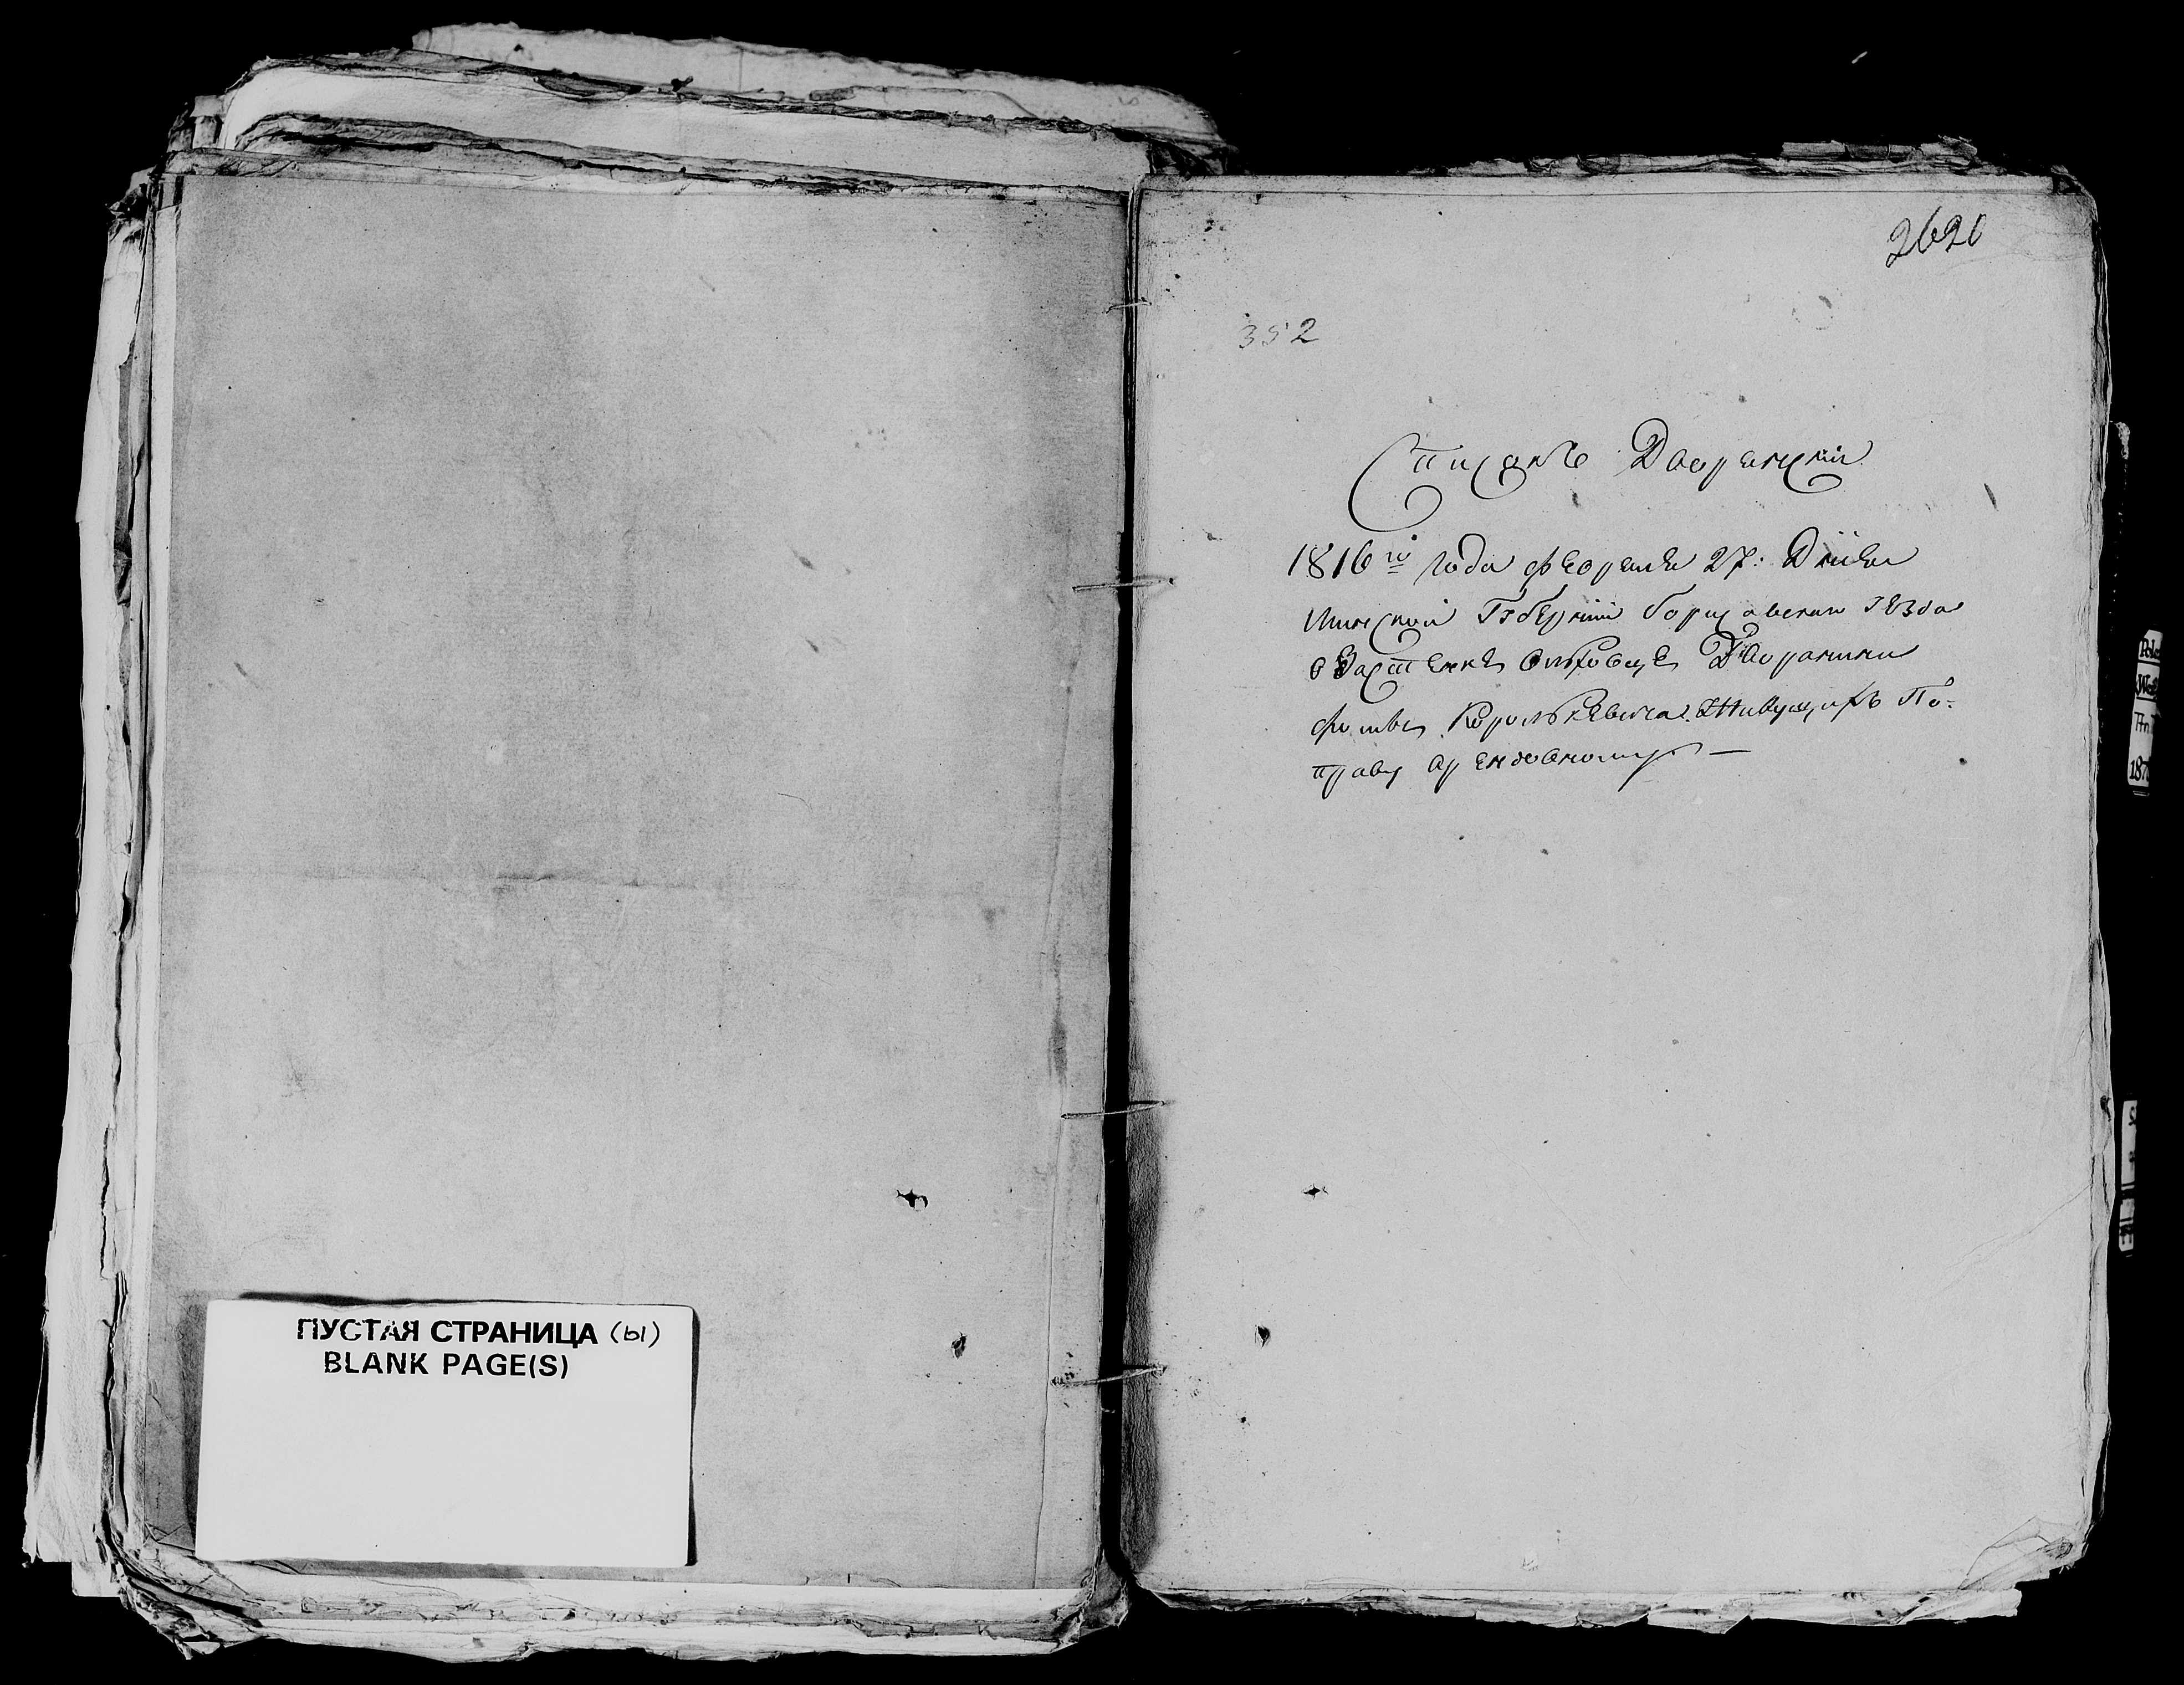 2620
352
Списокъ Дворянскій
1816го года февраля 27: Дніяа
Минской Губерніи борисовского уезда
о Застенкe Ольховце Дворянина
фомы Королькевича Живущихъ По=
праву арендовному —
ПУСТАЯ СТРАНИЦА (ы)
BLANK PAGE(S)